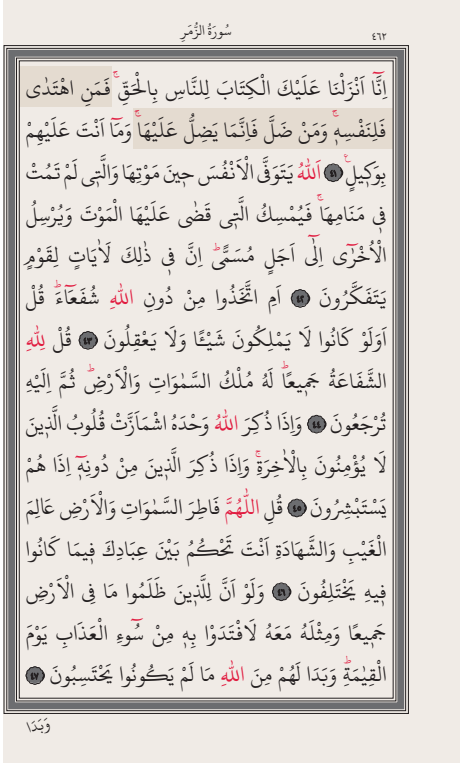 سُورَةُ الزُّمَرِ ٤٦٢
اِنَّٓا اَنْزَلْنَا عَلَيْكَ الْكِتَابَ لِلنَّاسِ بِالْحَقِّۚ فَمَنِ اهْتَدٰى
فَلِنَفْسِه۪ۚ وَمَنْ ضَلَّ فَاِنَّمَا يَضِلُّ عَلَيْهَاۚ وَمَٓا اَنْتَ عَلَيْهِمْ
بِوَك۪يلٍ۟ ٤١ اَللّٰهُ يَتَوَفَّى الْاَنْفُسَ ح۪ينَ مَوْتِهَا وَالَّت۪ي لَمْ تَمُتْ
ف۪ي مَنَامِهَاۚ فَيُمْسِكُ الَّت۪ي قَضٰى عَلَيْهَا الْمَوْتَ وَيُرْسِلُ
الْاُخْرٰٓى اِلٰٓى اَجَلٍ مُسَمًّىۜ اِنَّ ف۪ي ذٰلِكَ لَاٰيَاتٍ لِقَوْمٍ
يَتَفَكَّرُونَ ٤٢ اَمِ اتَّخَذُوا مِنْ دُونِ اللّٰهِ شُفَعَٓاءَۜ قُلْ
اَوَلَوْ كَانُوا لَا يَمْلِكُونَ شَيْـًٔا وَلَا يَعْقِلُونَ ٤٣ قُلْ لِلّٰهِ
الشَّفَاعَةُ جَم۪يعًاۜ لَهُ مُلْكُ السَّمٰوَاتِ وَالْاَرْضِۜ ثُمَّ اِلَيْهِ
تُرْجَعُونَ ٤٤ وَاِذَا ذُكِرَ اللّٰهُ وَحْدَهُ اشْمَاَزَّتْ قُلُوبُ الَّذ۪ينَ
لَا يُؤْمِنُونَ بِالْاٰخِرَةِۚ وَاِذَا ذُكِرَ الَّذ۪ينَ مِنْ دُونِه۪ٓ اِذَا هُمْ
يَسْتَبْشِرُونَ ٤٥ قُلِ اللّٰهُمَّ فَاطِرَ السَّمٰوَاتِ وَالْاَرْضِ عَالِمَ
الْغَيْبِ وَالشَّهَادَةِ اَنْتَ تَحْكُمُ بَيْنَ عِبَادِكَ ف۪يمَا كَانُوا
ف۪يهِ يَخْتَلِفُونَ ٤٦ وَلَوْ اَنَّ لِلَّذ۪ينَ ظَلَمُوا مَا فِي الْاَرْضِ
جَم۪يعًا وَمِثْلَهُ مَعَهُ لَافْتَدَوْا بِه۪ مِنْ سُٓوءِ الْعَذَابِ يَوْمَ
الْقِيٰمَةِۜ وَبَدَا لَهُمْ مِنَ اللّٰهِ مَا لَمْ يَكُونُوا يَحْتَسِبُونَ ٤٧
وَبَدَا